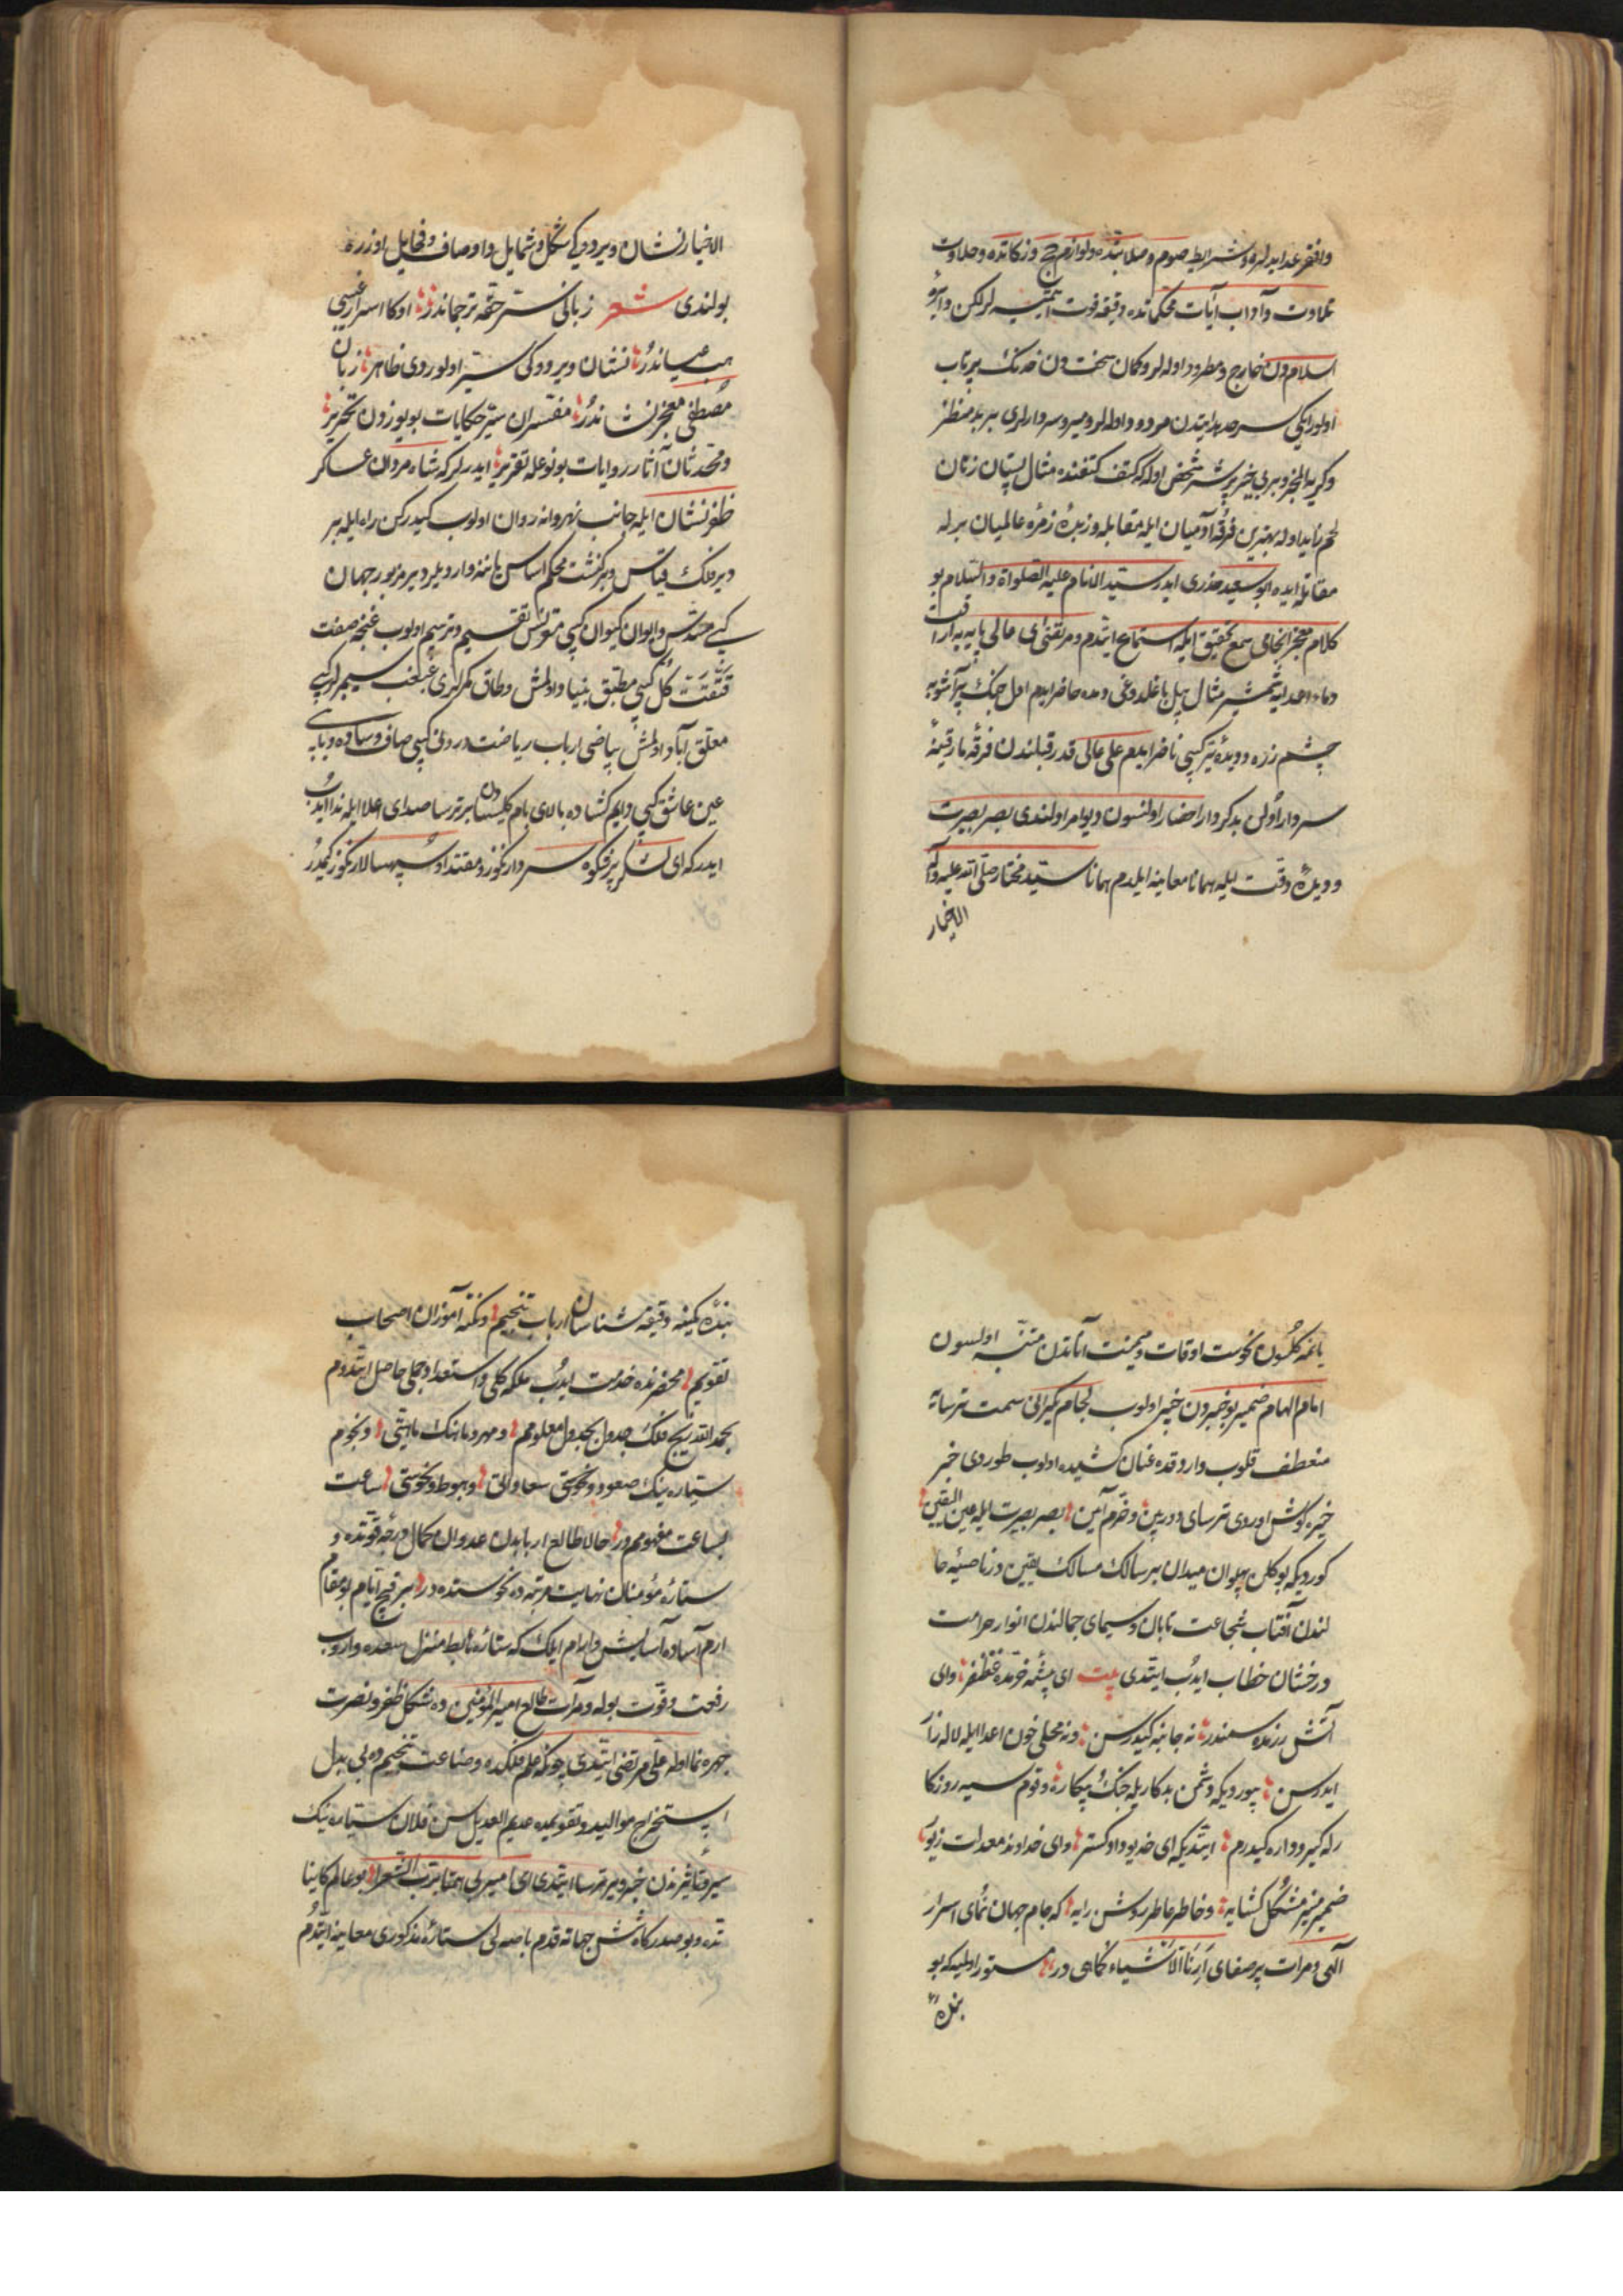 وافتخر عد ایدلر و شرایط صوم و صلاتنده و لوازم حج و زکاتنده و حلاوت
تلاوت و آداب آیات محکماتده دقیقه فوت ایتمیه لر لکن دایره
اسلامدن خارج و مطرود اوله لر و کمان سختدن خدنک پرتاب
اولور کبی سرحد هدایتدن مردود اوله لر و میر و سردارلری بر بد منظر
و کریه المخبر و بری بیخبر پر شر شخص اوله که کتف کتفنده مثال پستان زنان
لحم ناپیدا وله بهترین فرقه آدمیان ایله مقابله و زبده زمره عالمیان برله
مقاتله ایده ابو سعید خدری ایدر سید الانام علیه الصلواة والسلام بو
کلام معجز انجامی سمع تحقیق ایله استماع ایتدم و مرتضای عالی پایه یه اراقت
دماء اعدا ایله شمشیر مثال بیل باغلدوغی دمده حاضر ایدم اول جنک پرآشوبه
چشم زره و دیده تیر کبی ناظر ایدم علی عالی قدر قبلندن فرقه مارقینه
سردار اولن بدکردار احضار اولنسون دیو امر اولندی بصر بصیرت
و دیده دقت ایله همانا معاینه ایلدم همانا سید مختار صلی الله علیه وآله
الاخیار
الاخیار نشان ویردوکی شکل و شمایل و اوصاف و مخایل اوزره
بولندی شعر زبانی سر حقه ترجماندر اوکا اسرار غیبی
هب عیاندر نشان ویردوکی سر اولوردی ظاهر زبان
مصطفی معجز نشاندر مفسران سیر حکایات بو یوزدن تحریر
و محدثان آثار روایات بو نوعله تقریر ایدرلر که شاه مردان عساکر
ظفر نشان ایله جانب نهروانه روان اولوب کیدرکن راه ایله بر
دیر فلک قیاس و بر کنشت محکم اساس یاننه واردیلر دیر مزبور جهان
کبی مسدس و ایوان کیوان کبی مقرنس تقسیم و ترسیم اولوب غنچه صفت
کل کبی مطبق بنیاد اولمش و طاق کمرلری غبغب سیمبرلر کبی
معلق آباد اولمش بیاضی ارباب ریاضت درونی کبی صاف و ساده و بابی
عین عاشق کبی دایم کشاده بالای بام کلیسادن بر ترسا صدای اعلا ایله ندا ایدوب
ایدر که ای لشکر پرشکوه سردارکوز و مقتدا و سپهسالارکوز کمدر
یانمه کلسون نحوست اوقات و میمنت آناتدن متنبه اولسون
امام الهام ضمیر بو خبردن خبیر اولوب لجام یکرانی سمت ترسایه
منعطف قلوب واردقده عنان کشیده اولوب طوردی خبر
خیره کوش اوردی ترسای دوربین و خرم آیین بصر بصیرت ایله عین الیقین
کوردیکه بو کلن پهلوان میدان بر سالک مسالک یقین در ناصیه حا
لندن آفتاب شجاعت تابان و سیمای جمالندن انوار حرامت
درخشان خطاب ایدوب ایتدی بیت ای بیشه خردده غضنفر وای
آتش رزمده سمندر نه جانبه کیدرسن و نه محلی خون اعدا ایله لاله زار
ایدرسن بیوردیکه دشمن بدکار یله جنک و پیکاره و قوم سیه روزکا
رله کیر و داره کیدرم ایتدیکه ای خدیو داد کستر وای خداوند معدلت زیور
ضمیر منیر مشکل کشایه و خاطر عاطر روشن رایه که جام جهان نمای اسرار
الهی و مرآت پرصفای ارنا الاشیاء کماهی در مستور اولمیه که بو
بنده
بنده کمینه دقیقه شناسان ارباب تنجیم و نکته آموزان اصحاب
تقویم محضرنده خدمت ایدوب ملکه کلی و استعداد جلی حاصل ایتدوم
بحمد الله زیج فلک جدول بجدول معلومم و مهر و ماهنک ماهیتی و نجوم
سیاره ینک صعود و نحوستی سعادتی و هبوط و نحوستی ساعت
بساعت مفهومم در حالا طالع اربابدن عدوان کمال درجه قوتده و
ستاره مؤمنان نهایت مرتبه ده نحوستده در بر قچ ایام بو مقام
ارم آساده آسایش و آرام ایلک که ستاره هابط منزل سعده واروب
رفعت و قوت بوله و مرآت طالع امیر المؤمنین ده شکل ظفر و نصرت
چهره نما اوله علی مرتضی ایتدی چونکه علم فلکده و صناعت تنجیم ده بی بدل
استخراج موالید و تقویمده عدیم العدیل سن فلان ستاره ینک
سیر و تأثیرندن خبر ویر ترسا ایتدی ای امیر بی همتا برب الشعرا بو عالم کاینا
تده و بو صدرکاه شش جهاته قدم باصه لی ستاره مذکوری معاینه ایتدم